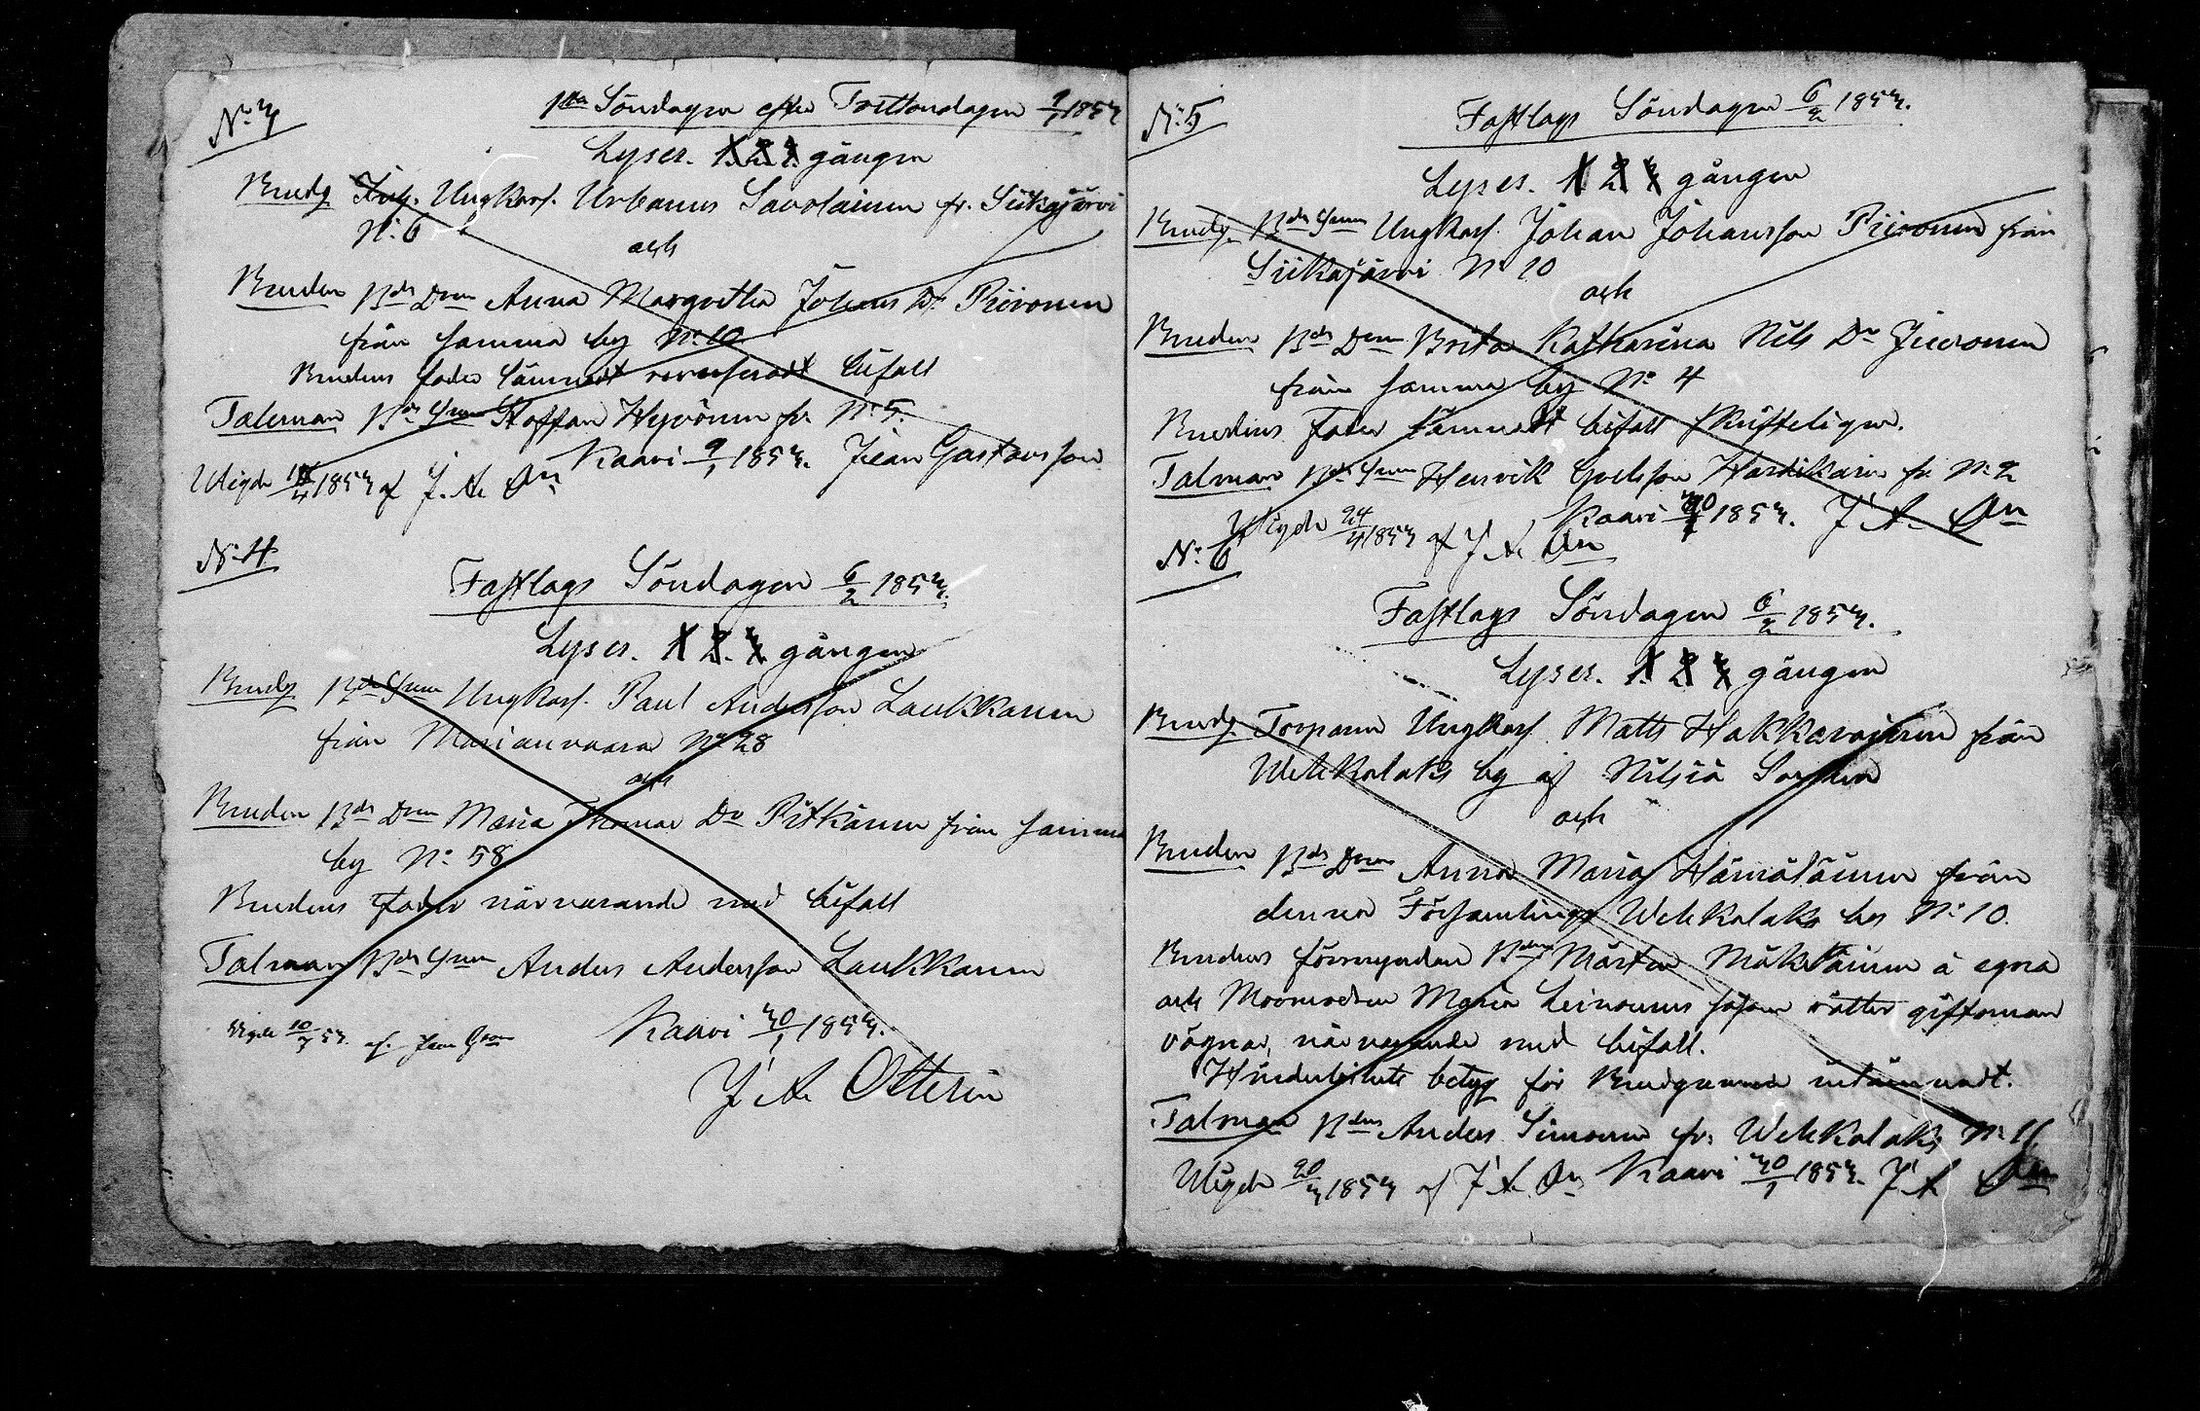 N:3
1sta Söndagen efter Trettondagen 9/1 1853
Lyses. 1. 2. 3. gången
Brudg Inh. Ungkarl. Urbanus Savolainen fr. Siikajärvi
N:6
och
Bruden Bde Dren Anna Margretha Johans Dr Piironen
från samma by N:10
Brudens fader lämnadt bifall
Taleman Bde Snen Staffan Hyvönen fr. N:5.
Kaavi 9/1 1853. Jean Gustavsson
Wigde 1853 af J. A. On
N:4
Fastlags Söndagen 6/2 1853.
Lyses. 1 2. 3. gången
Brudg Bde Snen Ungkarl. Paul Andersson Laukkanen
från Marianvaara N:28
och
Bruden Bde Dren Maria Thomas Dr Pitkänen från samma
by N:58
Brudens fader närvarande med bifall
Talman Bde Snen Anders Andersson Laukkanen
Kaavi 30/1 1853.
Wigde 10/7 53. af. Jean Gson
J. A. Ottelin
N:5
Fastlags Söndagen 6/2 1853.
Lyses. 1 2 3 gången
Brudg. Bde Snen Ungkarl. Johan Johansson Piironen från
Siikajärvi N:10
och
Bruden Bde Dren Brita Katharina Nils Dr
från samma by N:4
Brudens Fader lämnadt bifall skrifteligen.
Talman Bde Snen Henrik Hartikain fr. N:2
Kaavi 30/1 1853. J. A. On
Wigde 24/4 1853 af J. A. On
N:6
Fastlags Söndagen 6/2 1853.
Lyses. 1. 2 3 gången
Brudg. Torparen Ungkarl. Matts Hakkarainen från
Wehkalaks by af Nilsiä Socken
och
Bruden Bde Dren Anna Maria Hämäläinen från
denna Församlings Wehkalaks by N:10.
Brudens förmyndare Bden Mårten å egna
och Maria Leinonens såsom rätter giftoman
vägnar, närvarande med bifall.
Hinderlöshets betyg för Brudgummen inlämnadt.
Talman Bden Anders Simonen fr. Wehkalaks N:11
Wigde 20/3 1853 af J. A. On Kaavi 30/1 1853. J. A. On